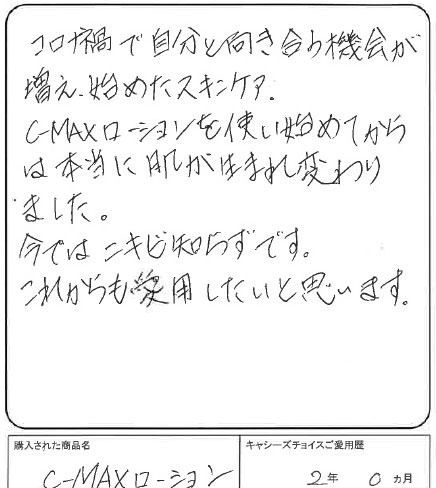 コロナ禍で自分と向き合う機会が
増え、始めたスキンケア.
C-MAXローションを使い始めてから
は本当に肌が生まれ変わり
ました。
今ではニキビ知らずです。
これからも愛用したいと思います。
購入された商品名
キャシーズチョイスご愛用歴
C-MAXローション
2年 0ヵ月